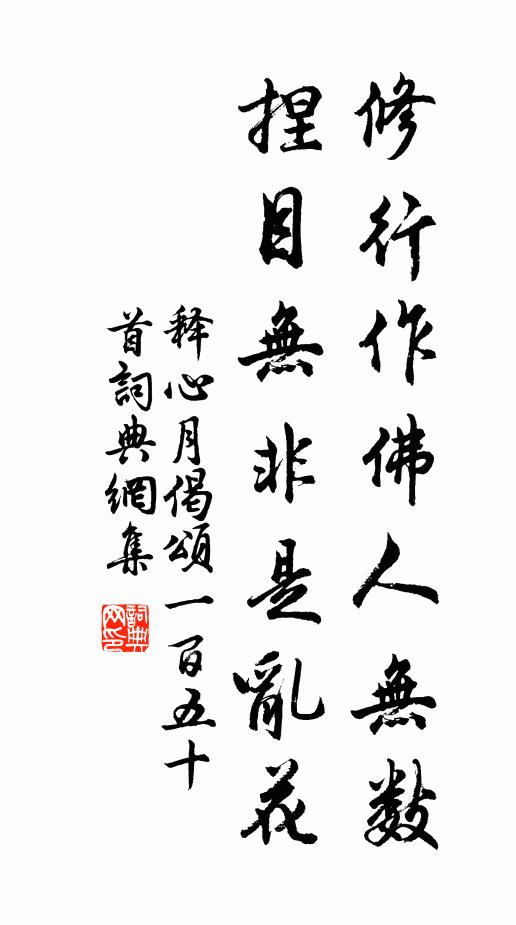 修行作佛人無數
捏目無非是亂花
释心月偈頌一百五十
首詞典網集
詞典網印